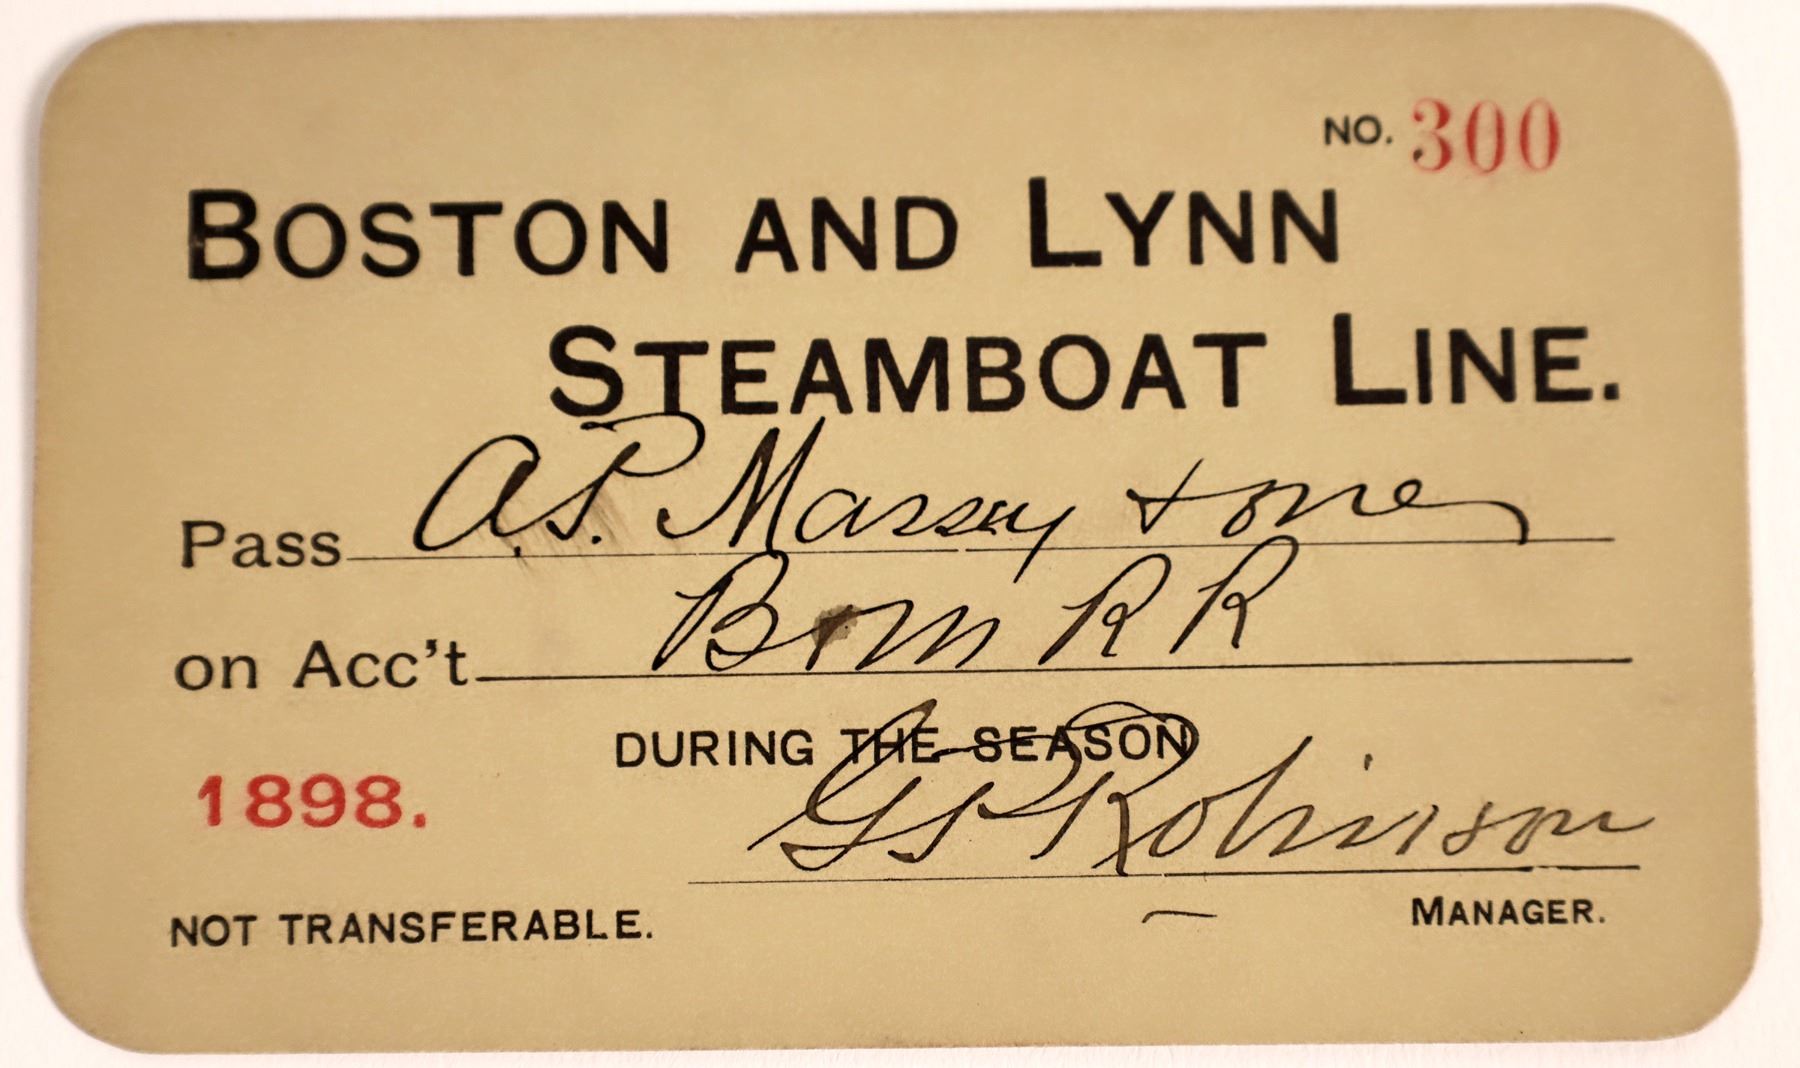 NO. 300
BOSTON AND LYNN
STEAMBOAT LINE.
Pass A.P. Massey + one
on Acc't B & M R R
DURING THE SEASON
1898.
G P Robinson
NOT TRANSFERABLE. MANAGER.